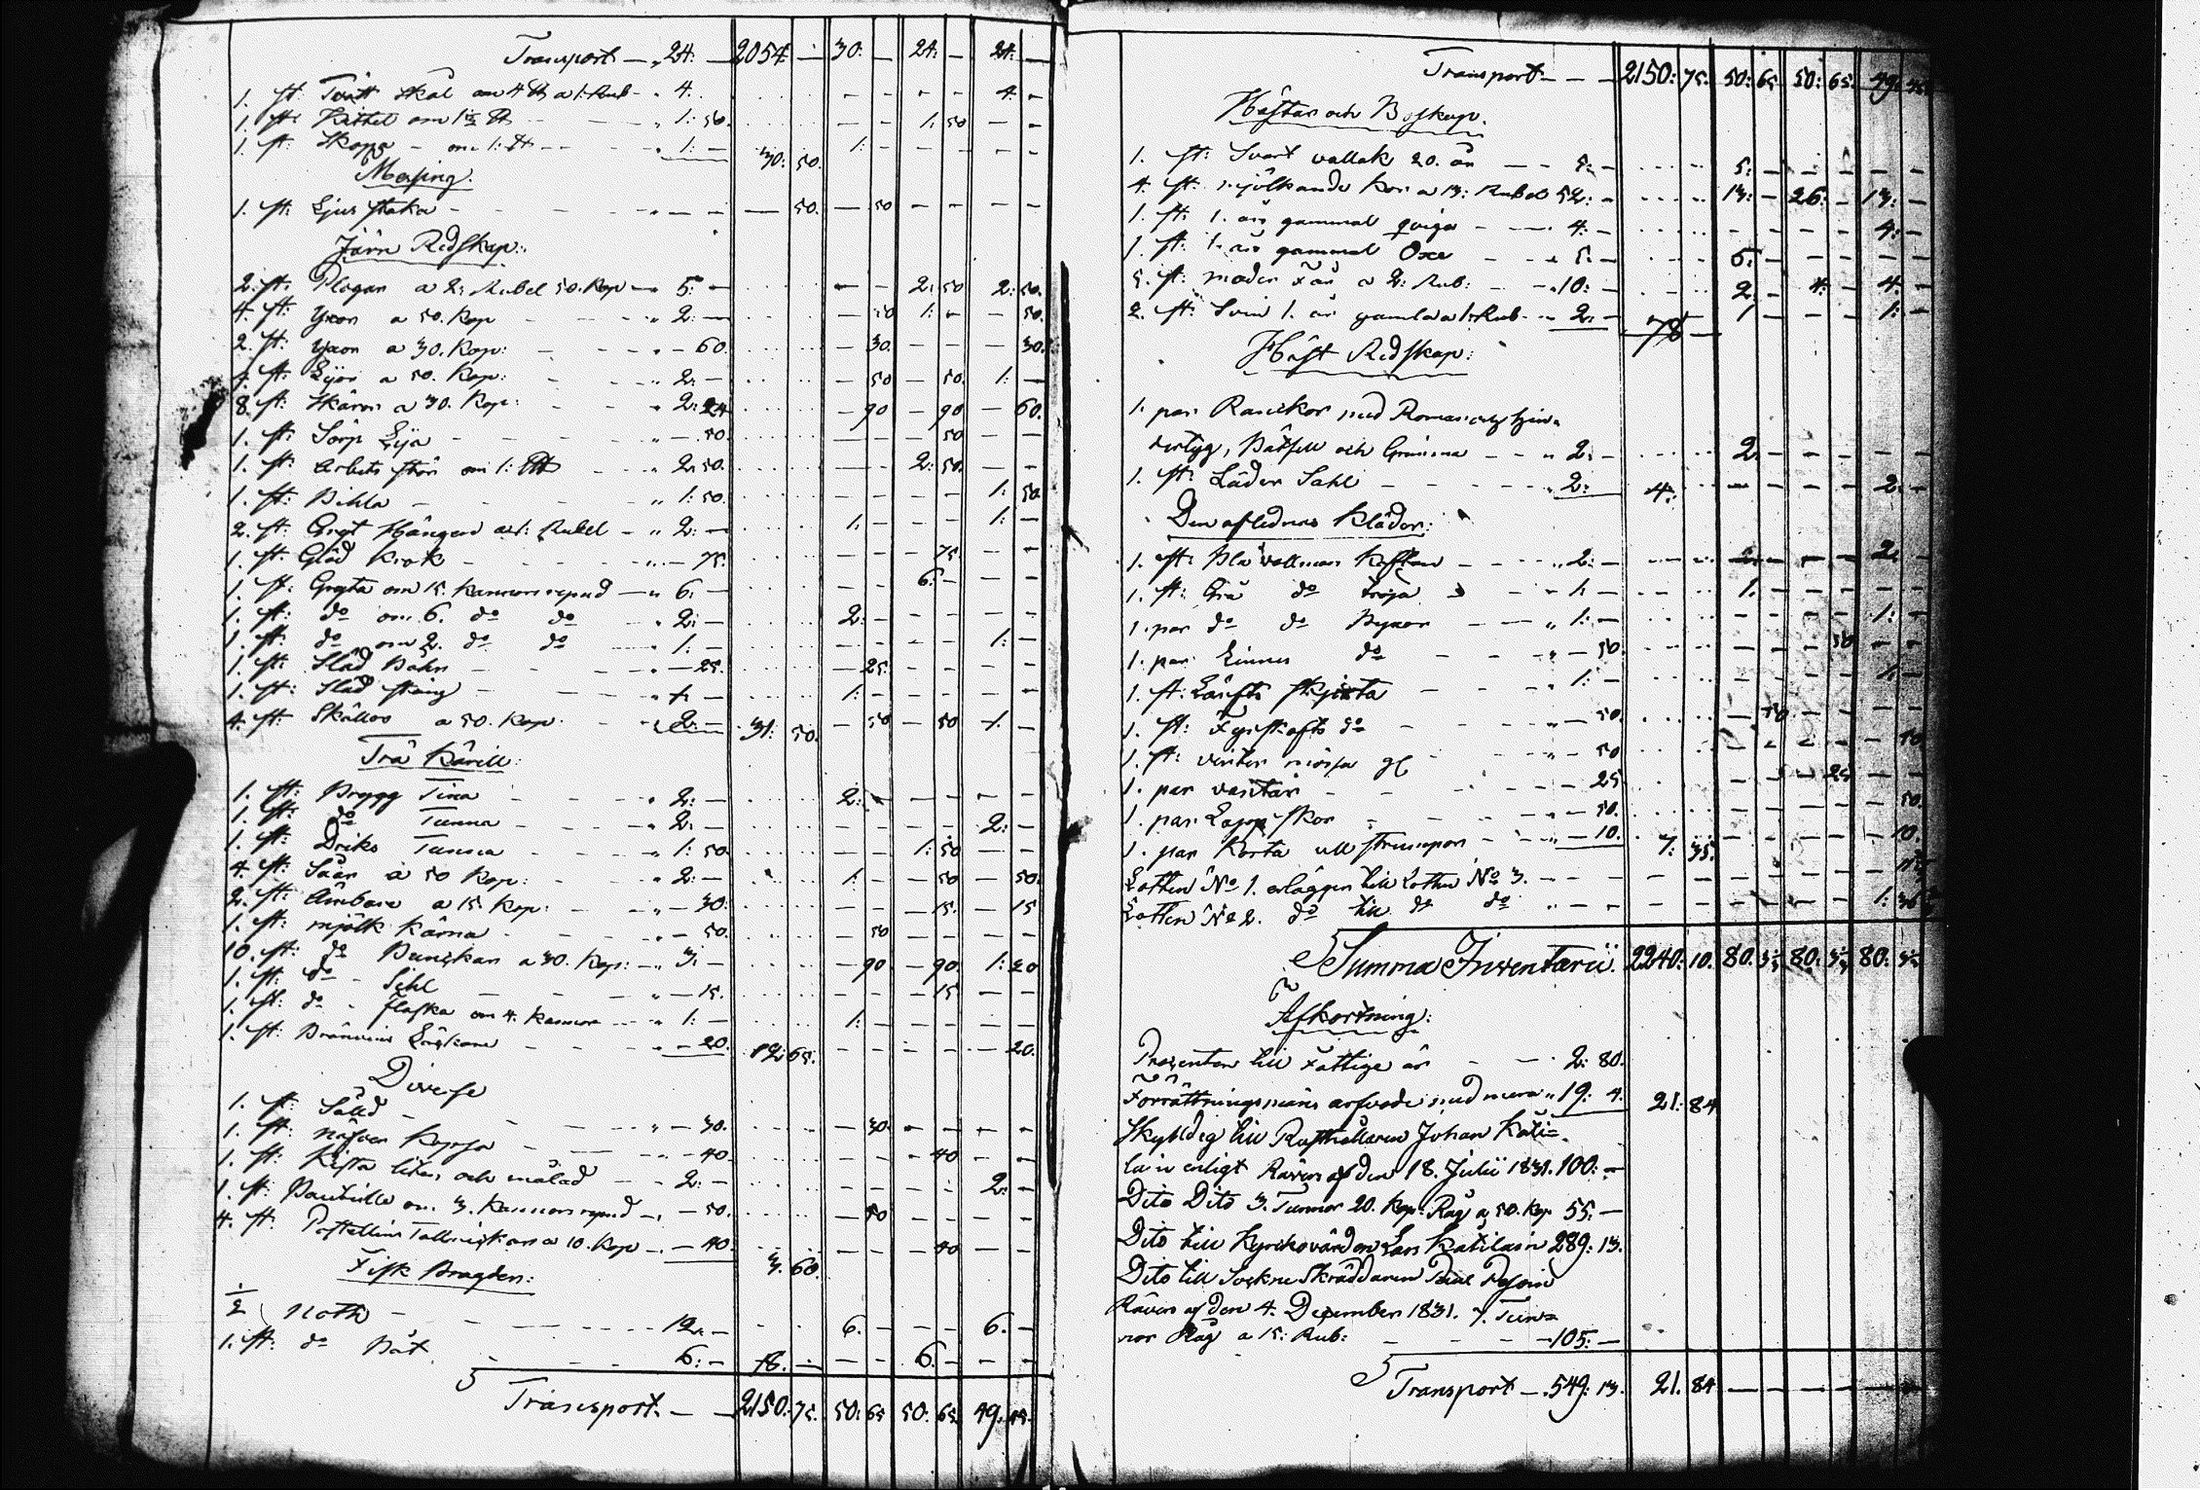 Transport — „ 24. — 2054 — 30. — 24. — 24. —
1. st. Tvätt skål om 4 ℔ a 1. Rub - „ 4. — 4. —
1. st: Kittel om 1½ ℔ — „ 1: 50. 1: 50
1. st. Skopa - om 1: ℔ — „ 1: — 30: 50. 1: —
Messing.
1. st: Ljus staka — 50. — 50
Järn Redskap:
2. st: Plogar a 2: Rubel 50. Kop — 5: — 2: 50 2: 50.
4. st: Yxor a 50. Kop — „ 2: — 50 1: — 50.
2. st: Yxor a 30. Kop: — 60. 30. 30.
4. st: Lijor a 50. Kop: „ 2: — 50 — 50. 1: —
8. st: Skäror a 30. Kop: „ 2: 24 — 90 — 90 — 60.
1. st: Sörp Lija — 50. 50
1. st: Arbets stör om 1: L℔ — 2: 50. 2: 50.
1. st: Bihla — „ 1: 50. 1: 50
2. st: Gryt Hängen a 1: Rubel — „ 2: — 1: — 1: —
1. st. Glöd Krok — 75. 75
1. st: Gryta om 15. Kannors rymd — „ 6: — 6: —
1. st: do om 6. do do „ 2: — 2: —
1. st: do om 2. do do 1: — 1: —
1. st: Släd Bohn — 25. 25.
1. st: Släd stång — 1: — 1: —
4. st: Skällor a 50. Kop: „ 2: — 31: 50. — 50 — 50 1. —
Trä Kärill:
1. st: Brygg Tina — „ 2: — 2: —
1. st: do Tunna — „ 2: — 2: —
1. st: Dricks Tunna — „ 1: 50 1: 50
4. st: Såar a 50 Kop: „ 2: — 1: — 50 — 50.
2. st: Ämbare a 15. Kop: — „ — 30: — 15. — 15
1. st: mjölk kärna — „ — 50. 50
10. st: do Bunckar a 30. Kop: — „ 3: — 90 — 90 1: 20
1. st: do Sihl — „ — 15. 15
1. st: do - flaska om 4. kannor — „ 1: — 1: —
1. st: Bränvins Lägkare — 20. 12: 65. — 20.
Diverse
1. st: Såld — 30. 30.
1. st: näfver Koppa — 40. 40
1. st: Kista liten och målad — „ 2: — 2: —
1. st: Bouteille om 3. Kannors rymd — „ — 50. — 50
4. st: Postellins Tallrickar a 10. Kop — „ — 40. 3: 60. 40
Fisk Bragder:
½ Noth — 12. — 6. — 6. —
1. st: do Båt — 6: — 18: — 6. —
Transport — 2150: 75. 50: 65 50: 65. 49: 45.
Transport — 2150: 75. 50: 65. 50: 65. 49: 45
Hästar och Boskap.
1. st: Svart vallak 20. år — 5: — 5: —
4. st: mjölkande Kor a 13: Rubel 52: — 13: — 26: — 13: —
1. st: 1. års gammal qviga — 4: — 4: —
1. st: 1. års gammal Oxe — „ 5: — 5: —
5. st: moder Får a 2: Rub: — „ 10: — 2: — 4: — 4: —
2. st: Svin 1. års gamla a 1: Rub — „ 2: — 78 — 1 — 1: —
Häst Redskap:
1. par Ranckor med Romar och
vertyg, Båtsell och Grimma — „ 2: — 2: —
1. st: Läder Sahl — „ 2: — 4: 2: —
Den aflednas Kläder:
1. st: Blå vallmars Kaftan — „ 2: — 2: —
1. st: Grå do tröja — „ 1: — 1. —
1. par do do Byxor — „ 1: — 1: —
1. par Linnes do — „ — 50. 50
1. st: Lärfts skjorta — 1: — 1: —
1. st: Fyrskafts do — „ — 50. 50
1. st: vinter mössa gl — „ — 50 50
1. par vantar — 25 25
1. par Lapp skor — 50. 50.
1. par Korta ull strumpor — „ — 10. 7: 35. 10.
Lotten No 1. erlägger till Lotten No 3.
Lotten No 2. do till do do — 1: 36
Summa Inventarii. 2240: 10. 80. 80: 80:
Afkortning:
Procenten till Fattige är — 2: 80.
Förrättningsmäns arfvode med mera „ 19: 4. 21: 84
Skyldig till Rusthållaren Johan Kati=
lain enligt Rävers af den 18. Julii 1831. 100: —
Dito Dito 3. Tunnor 20. Kap: Råg a 50. Kop 55: —
Dito till Kyrkovärden Lars Katilain 289: 13.
Dito till Sockne Skräddaren Paul
Rävers af den 4. December 1831. 7. Tun=
nor Råg a 15: Rub: — 105: —
Transport — 549: 13. 21. 84